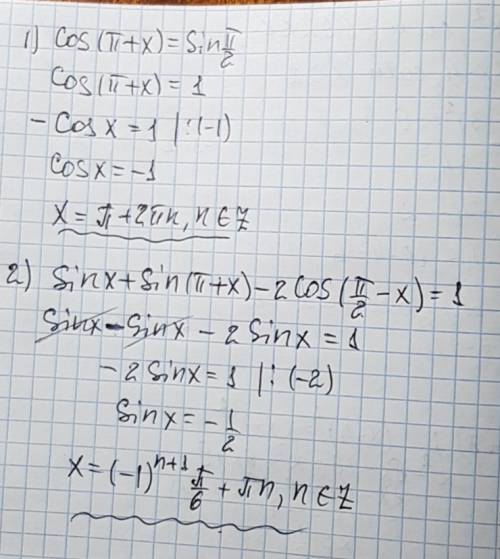 1) Cos(π+x)=Sin π/2
Cos(π+x)=1
-Cosx=1 |:(-1)
Cosx=-1
x=π+2πn, n∈Z
2) Sinx+Sin(π+x)-2Cos(π/2-x)=1
Sinx-Sinx-2Sinx=1
-2Sinx=1 |:(-2)
Sinx=-1/2
x=(-1)ⁿ⁺¹ π/6+πn, n∈Z